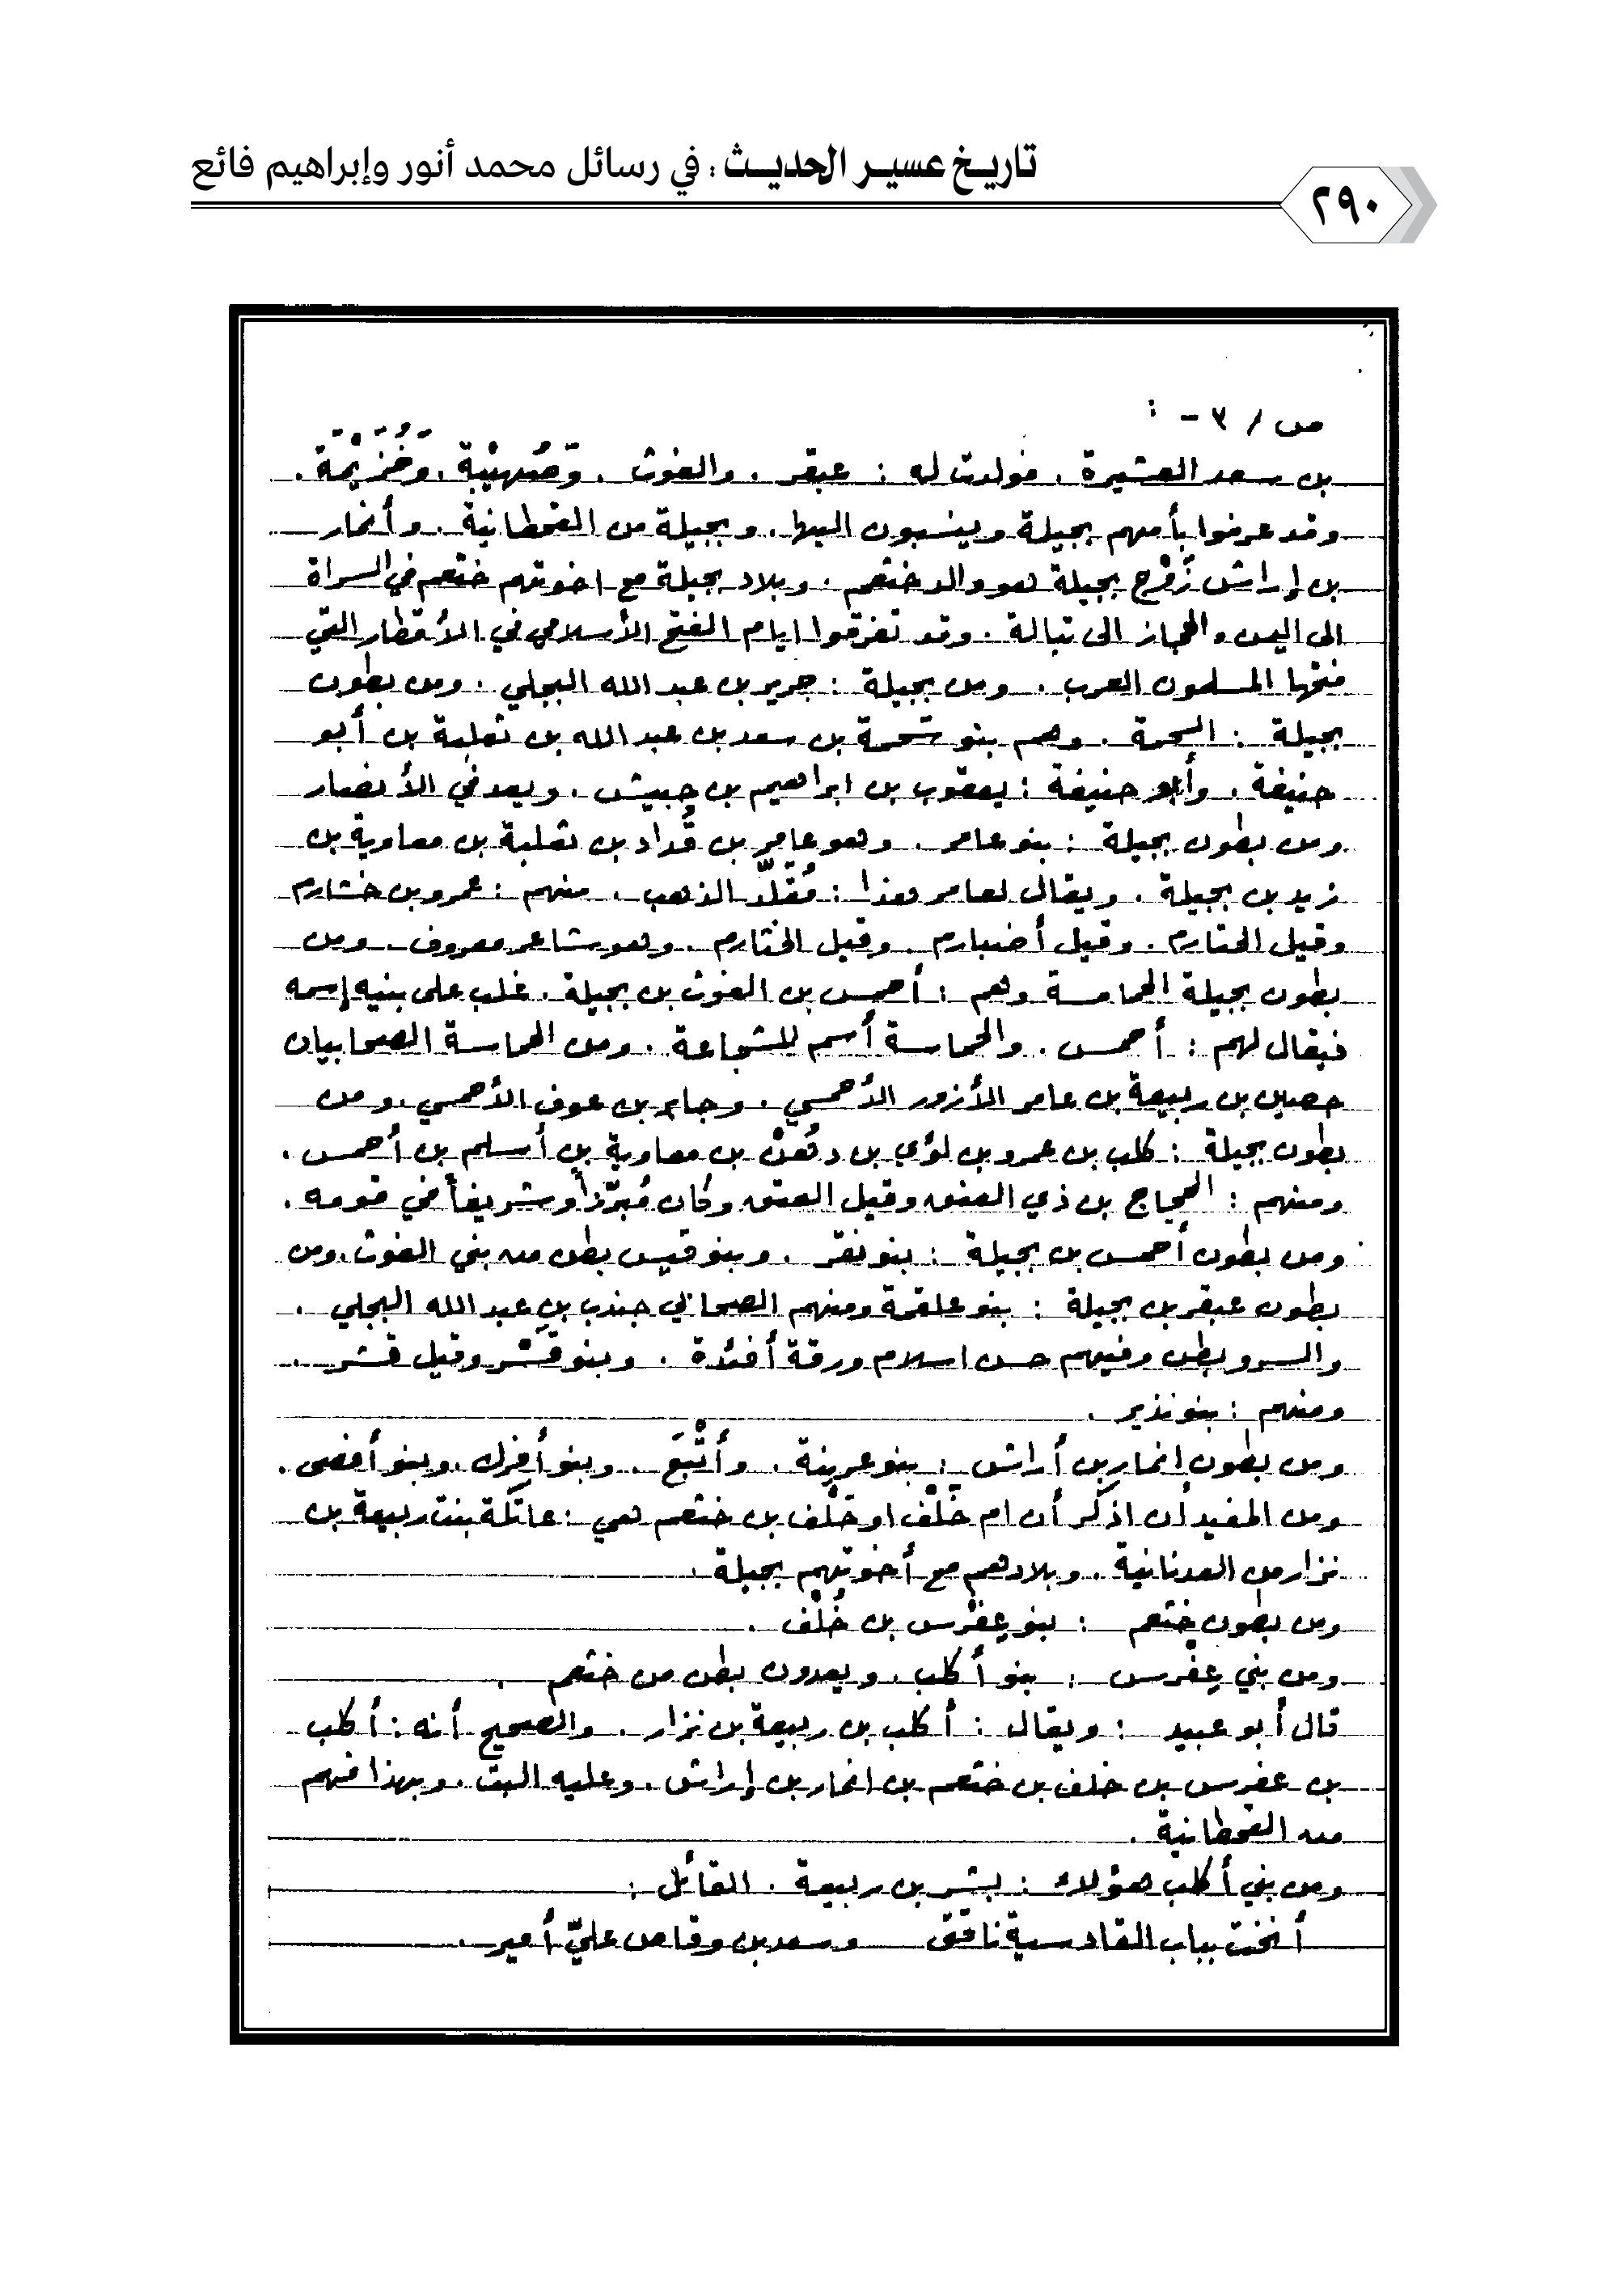 تاريخ عسير الحديث : في رسائل محمد أنور وإبراهيم فائع
٢٩٠
ص / ٣ - :
بن سعد العشيرة . فولدت له : عبقر . والغوث . وَصُهيْبَة . وَخُزَيْمَة .
وقد عرفوا بأمهم بجيلة وينسبون اليها . وبجيلة من القحطانية . وأنمار
بن إراش زَوْج بجيلة هو والد خثعم . وبلاد بجيلة مع اخوتهم خثعم في السراة
الى اليمن والحجاز الى تبالة . وقد تفرقوا ايام الفتح الأسلامي في الأقطار التي
فتحها المسلمون العرب . ومن بجيلة : جرير بن عبد الله البجلي . ومن بطون
بجيلة : السحمة . وهم بنو سَحمة بن سعد بن عبد الله بن ثعلبة بن أبو
حنيفة . وأبو حنيفة : يعقوب بن ابراهيم بن حُبيش . ويعد في الأنصار
ومن بطون بجيلة : بنو عامر . وهو عامر بن قُداد بن ثعلبة بن معاوية بن
زيد بن بجيلة . ويقال لعامر هذا : مُقَلّد الذهب . منهم : عمرو بن خشارم
وقيل الخثارم . وقيل أضبارم . وقيل الخثارم . وهو شاعر معروف . ومن
بطون بجيلة الحمامسة وهم : أحمس بن الغوث بن بجيلة . غلب على بنيه إسمه
فيقال لهم : أحمس . والحماسة أسم للشجاعة . ومن الحماسة الصحابيان
حصين بن ربيعة بن عامر الأزور الأحمسي . وجابر بن عوف الأحمسي . ومن
بطون بجيلة : كلب بن عمرو بن لؤي بن دُهنْ بن معاوية بن أسلم بن أحمس .
ومنهم : الحجاج بن ذي العنق وقيل العتق وكان مُبَرّزاً وشريفاً في قومه .
ومن بطون أحمس بن بجيلة : بنو نفر . وبنو قيس بطن من بني الغوث . ومن
بطون عبقر بن بجيلة : بنو علقمة ومنهم الصحابي جندب بن عبد الله البجلي .
والسرو بطن وفيهم حسن اسلام ورقة أفئدة . وبنو قَسْر وقيل قشر .
ومنهم : بنو نذير .
ومن بطون إنمار بن أراش : بنو عرينة . وأَتْبَع . وبنو أفزك . وبنو أفصى .
ومن المفيد أن اذكر أن ام خَلْف او حَلْف بن خثعم هي : عاتكة بنت ربيعة بن
نزار من العدنانية . وبلادهم مع أخوتهم بجيلة .
ومن بطون خثعم : بنو عِفْرس بن خُلْف .
ومن بني عِفْرس : بنو أكلب . ويعدون بطن من خثعم .
قال أبو عبيد : ويقال : أكلب بن ربيعة بن نزار . والصحيح أنه : أكلب
بن عفرس بن خلف بن خثعم بن انمار بن إراش . وعليه البت . وبهذا فهم
من القحطانية .
ومن بني أكلب هؤلاء : بشر بن ربيعة . القائل :
أنخت بباب القادسية ناقتي وسعد بن وقاص عليّ أمير .